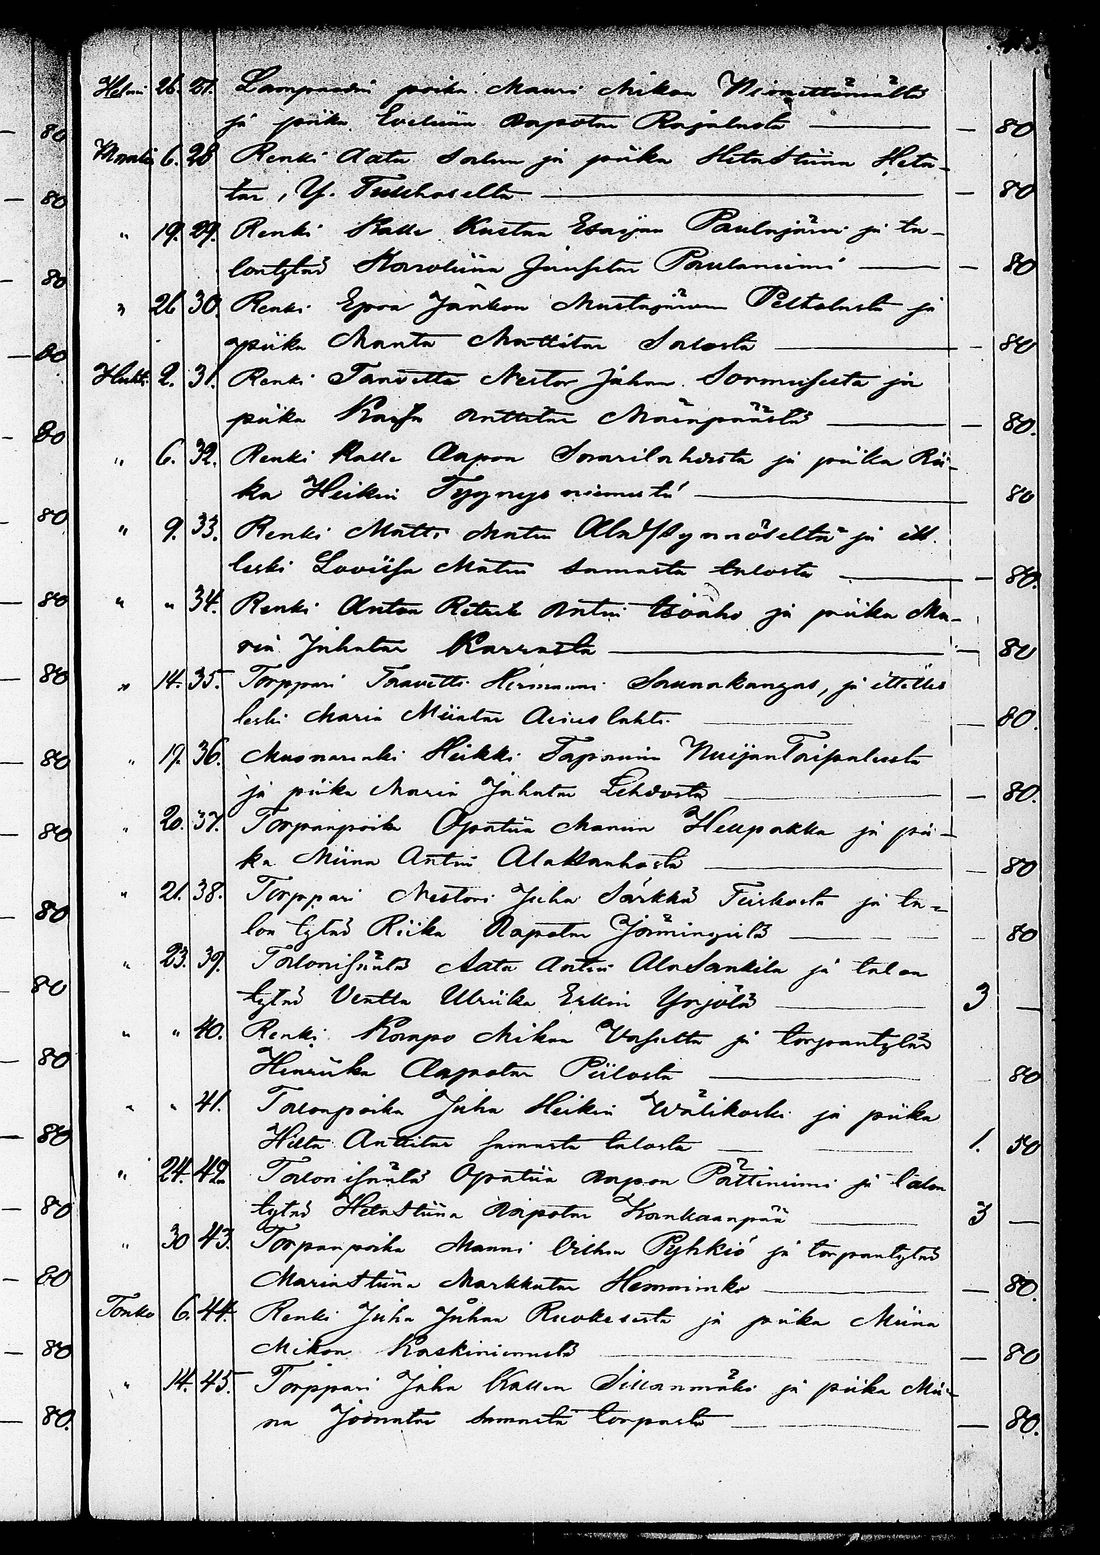 Helmi 26. 27. Lampuodin poika Mauri Mikon
ja piika Eveliina Aapotar Rajalasta — 80
Maalis 6. 28. Renki Aatu Salun ja piika HetaStiina Heta-
tar, Y. — 80
" 19. 29. Renki Kalle Kustaa Esaijan Paulajärvi ja ta-
lontytär Karoliina Paulaniemi — 80
" 26 30. Renki Epra Jaakon Mustajärven Peltolasta ja
piika Manta Mattitar Salosta — 80
Huhti. 2. 31. Renki Taavetti Nestor Juhan Sormusesta ja
piika Kaisa Anttitar Mäenpäästä — 80.
" 6. 32. Renki Kalle Aapon Saarilahdesta ja piika Rii-
ka Heikin niemestä 80
" 9. 33. Renki Matti Matin ja itl.
leski Loviisa Matin samasta talosta — 80.
" " 34. Renki Anton Antin Isoaho ja piika Ma-
ria Juhatar Karrasta — 80
" 14. 35. Torppari Taavetti Hermanni Saunakangas, ja itellis
leski Maria Miintar lahti — 80.
" 19. 36. Muonarenki Heikki Tapanin NuijanTaipaleesta
ja piika Maria Juhatar Lehdosta — 80.
" 20. 37. Torpanpoika Opatiia Manun Heupakka ja pii-
ka Miina Antin — 80
" 21. 38. Torppari Nestori Juha Särkkä ja ta-
lon tytär Riika Aapotar — 80
" 23. 39. Talonisäntä Aatu Antin AlaSankila ja talon
tytär Ventla Ulriika Erkin Yrjölä 3 —
" " 40. Renki Kaapo Mikon ja torpantytär
Henriika Aapotar Piilosta 80
" " 41. Talonpoika Juha Heikin Wälikoski ja piika
Hilta Anttitar samasta talosta 1. 50
" 24. 42. Talonisäntä Opatiia Aapon Pättiniemi ja talon
tytär HetaStiina Aapotar Kankaanpää 3 —
" 30 43. Torpanpoika Manni Pyhkiö ja torpantytär
MariaStiina Markkutar — 80.
Touko 6. 44. Renki Juha Juhan Ruokesesta ja piika Miina
Mikon Kaskiniemestä — 80
" 14. 45. Torppari Juha Kallen Sillanmäki ja piika Mii-
na Joonatar samasta torpasta — 80.